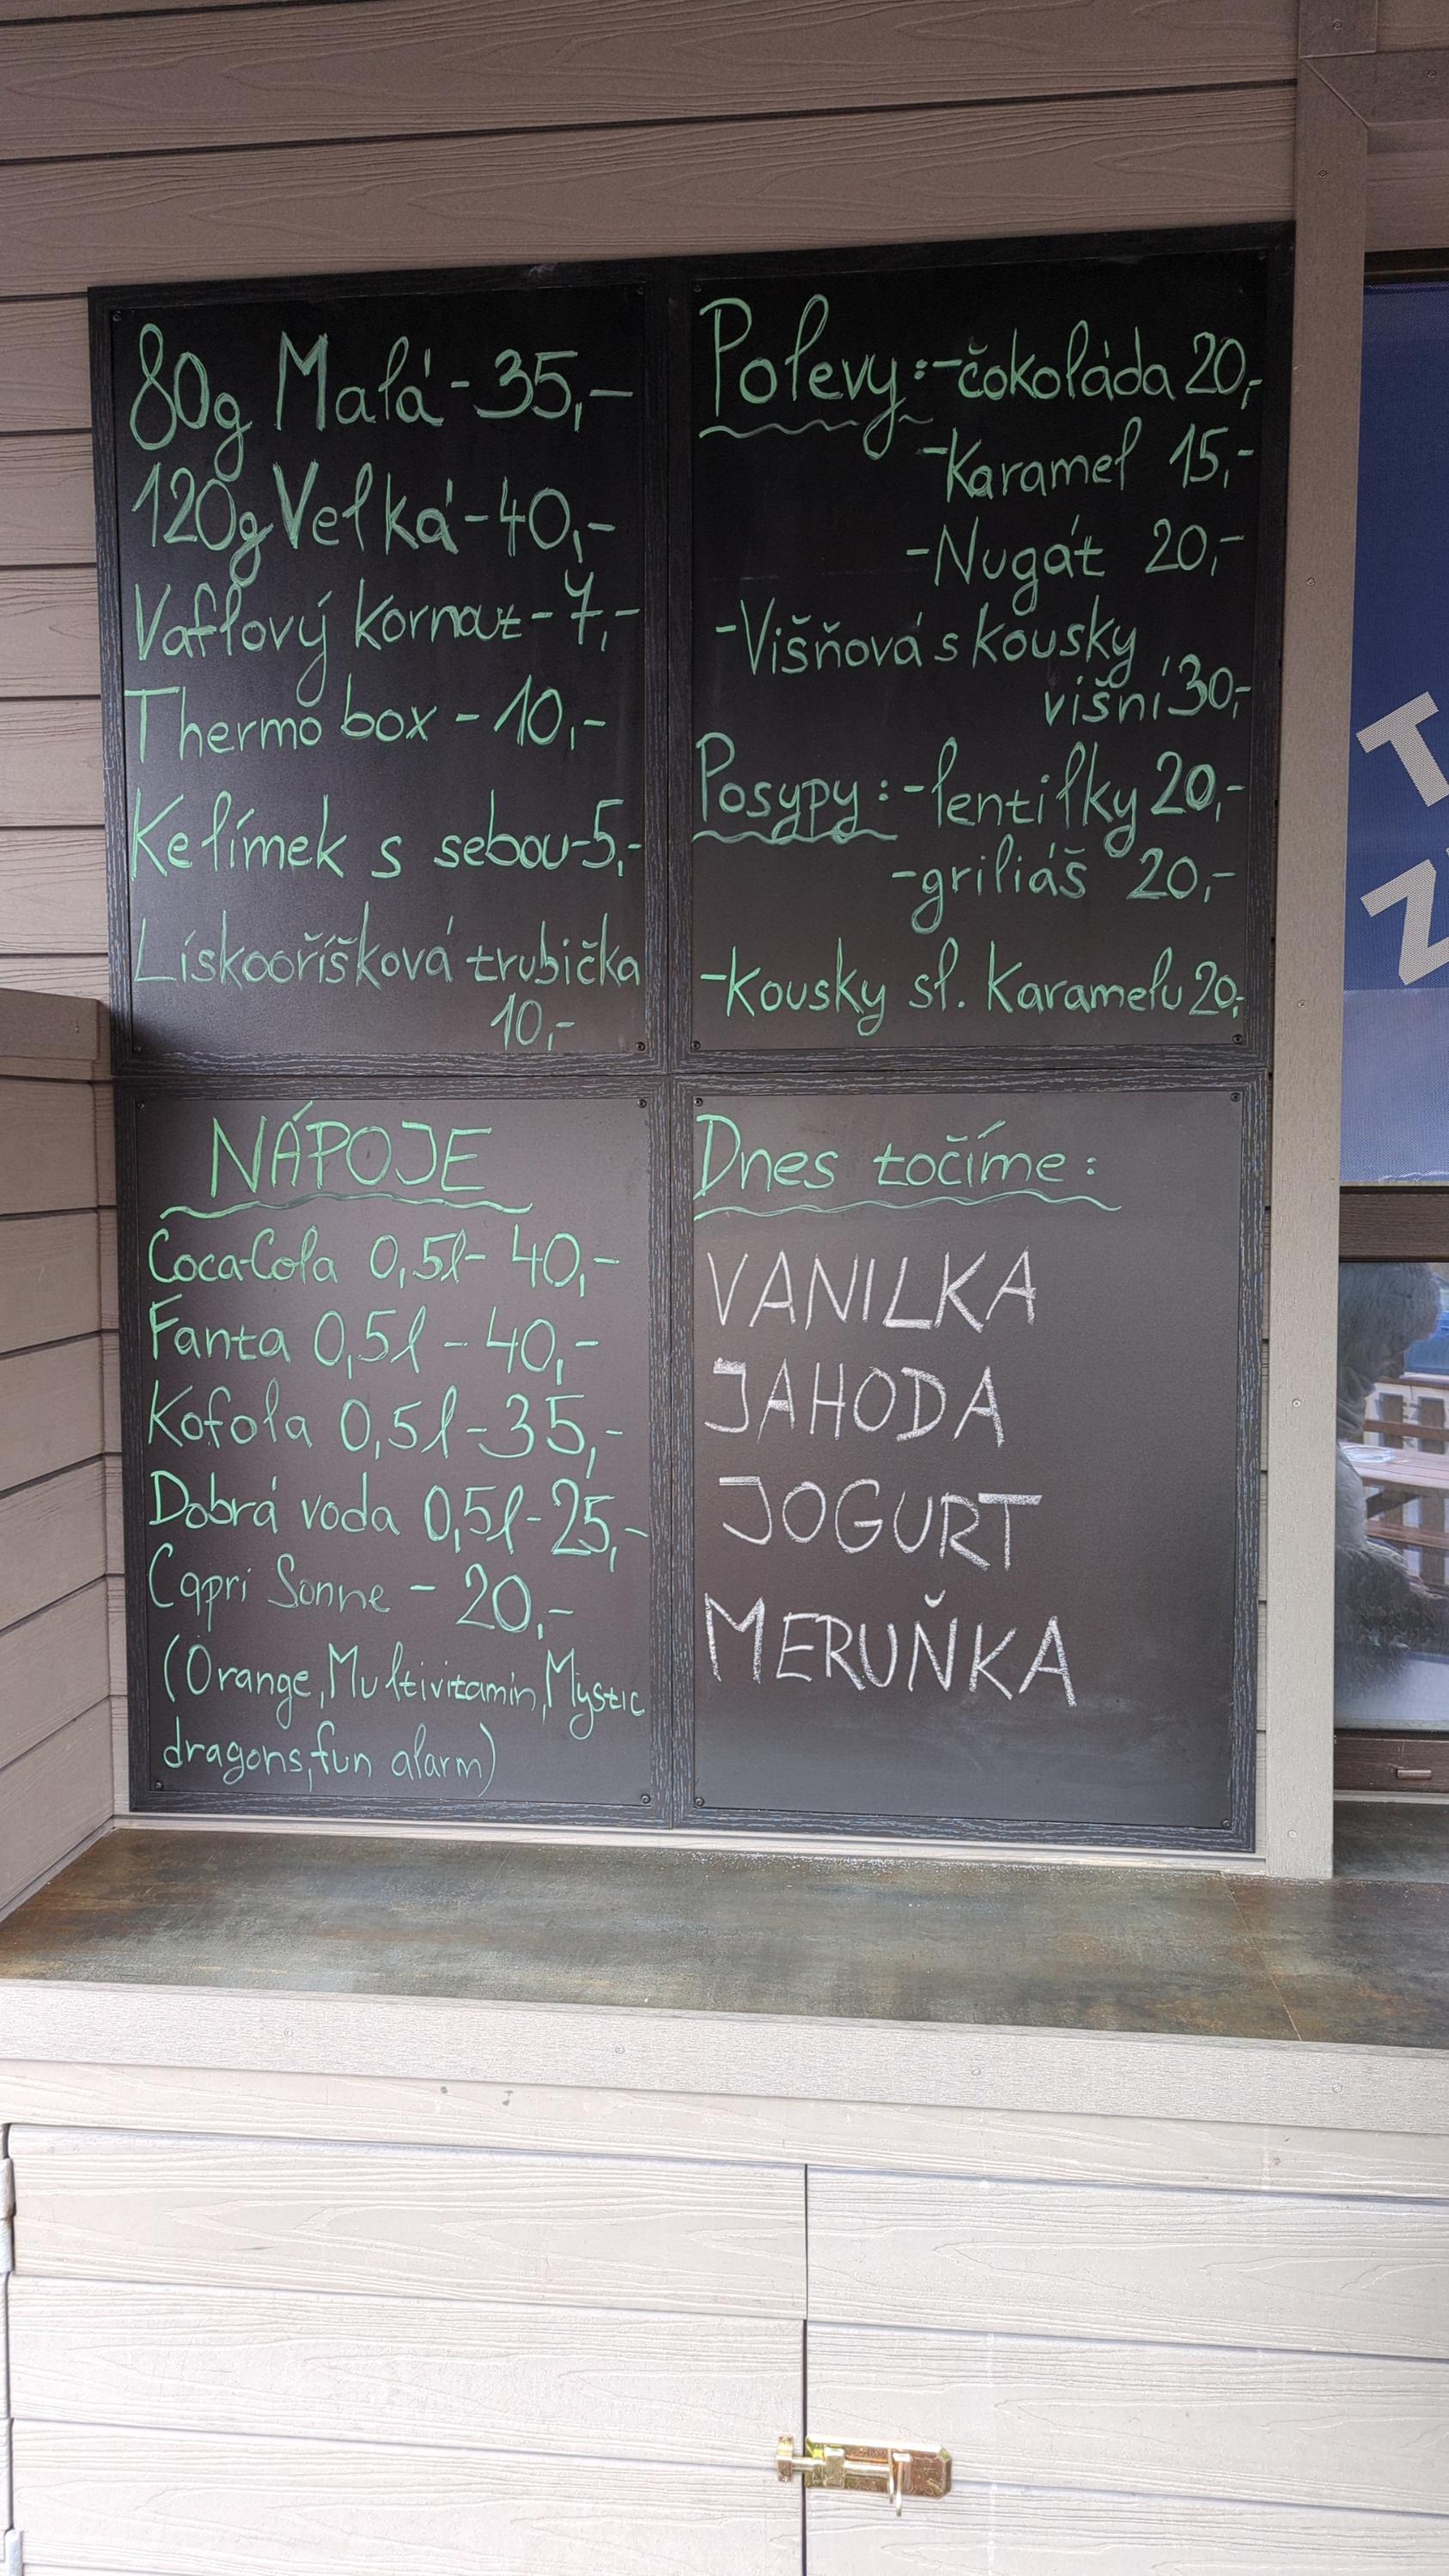 80g Malá - 35,-
120g Velká - 40,-
Vaflový kornout - 7,-
Thermo box - 10,-
Kelímek s sebou - 5,-
Lískooříšková trubička
10,-
Polevy: - čokoláda 20,-
- Karamel 15,-
- Nugát 20,-
- Višňová s kousky
višní 30,-
Posypy: - lentilky 20,-
- griliáš 20,-
- kousky sl. Karamelu 20,-
NÁPOJE
Coca-Cola 0,5l - 40,-
Fanta 0,5l - 40,-
Kofola 0,5l - 35,-
Dobrá voda 0,5l - 25,-
Capri Sonne - 20,-
(Orange, Multivitamin, Mystic
dragons, fun alarm)
Dnes točíme:
VANILKA
JAHODA
JOGURT
MERUŇKA
T